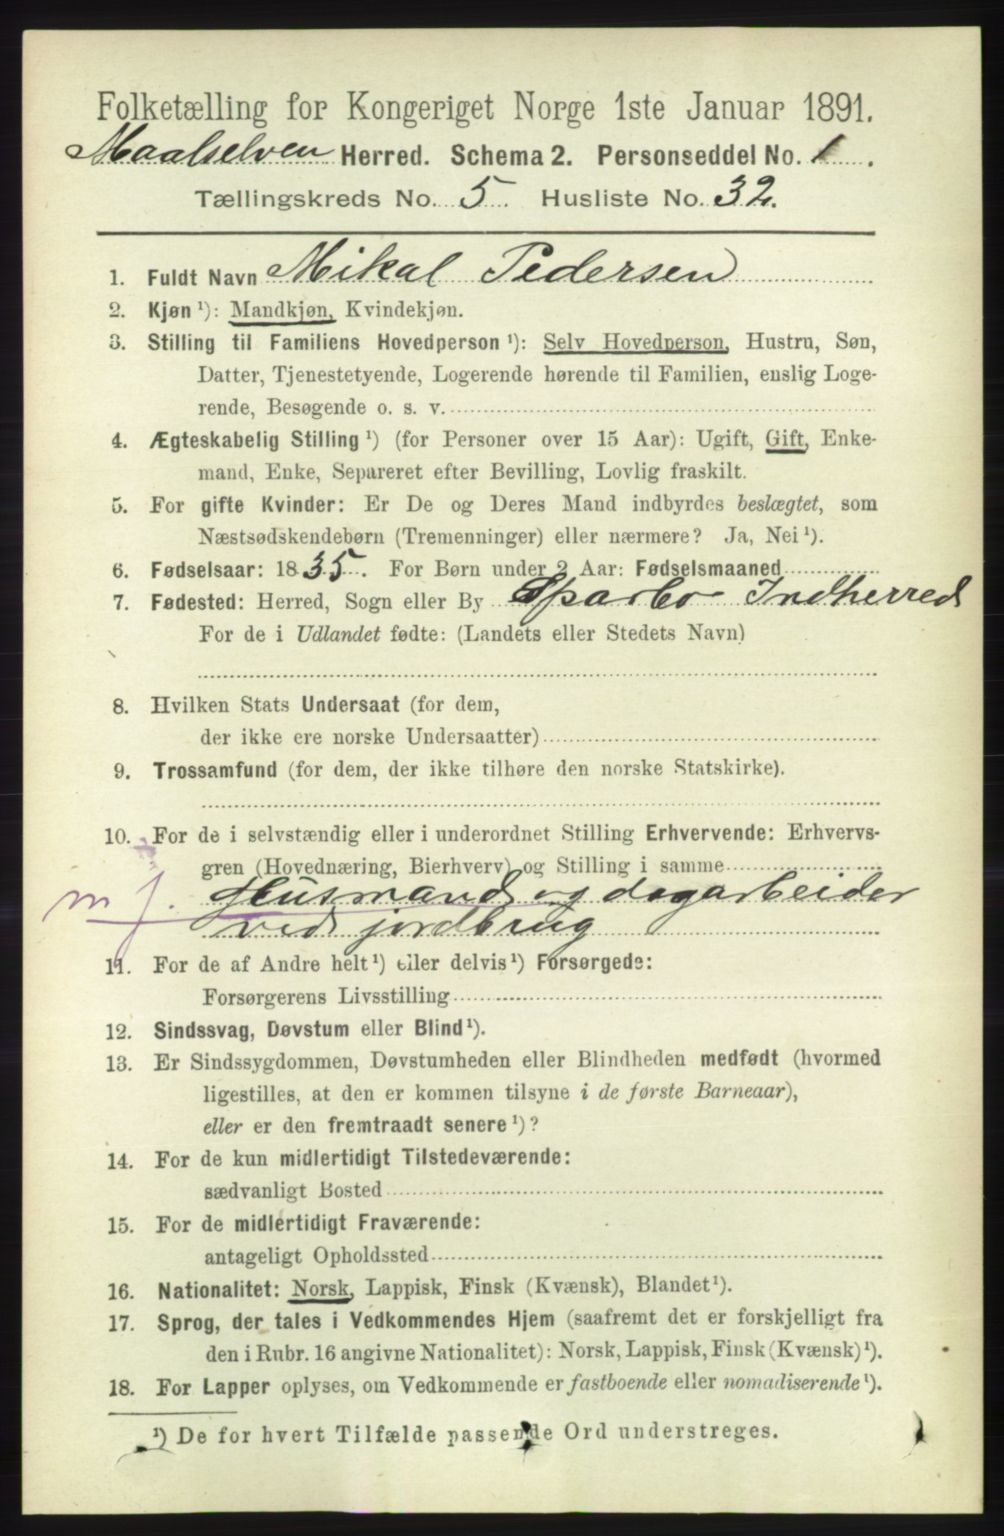 Folketælling for Kongeriget Norge 1ste Januar 1891.
Maalselven Herred. Schema 2. Personseddel No. 1.
Tællingskreds No. 5. Husliste No. 32.
1. Fuldt Navn Mikal Pedersen
2. Kjøn ¹): Mandkjøn, Kvindekjøn.
3. Stilling til Familiens Hovedperson ¹): Selv Hovedperson, Hustru, Søn,
Datter, Tjenestetyende, Logerende hørende til Familien, enslig Loge-
rende, Besøgende o. s. v.
4. Ægteskabelig Stilling ¹) (for Personer over 15 Aar): Ugift, Gift, Enke-
mand, Enke, Separeret efter Bevilling, Lovlig fraskilt.
5. For gifte Kvinder: Er De og Deres Mand indbyrdes beslægtet, som
Næstsødskendebørn (Tremenninger) eller nærmere? Ja, Nei ¹).
6. Fødselsaar: 1835. For Børn under 2 Aar: Fødselsmaaned
7. Fødested: Herred, Sogn eller By Sparbo Indherred
For de i Udlandet fødte: (Landets eller Stedets Navn)
8. Hvilken Stats Undersaat (for dem,
der ikke ere norske Undersaatter)
9. Trossamfund (for dem, der ikke tilhøre den norske Statskirke).
10. For de i selvstændig eller i underordnet Stilling Erhvervende: Erhvervs-
gren (Hovednæring, Bierhverv) og Stilling i samme
m j. Husmand og dagarbeider
ved jordbrug
11. For de af Andre helt ¹) eller delvis ¹) Forsørgede:
Forsørgerens Livsstilling
12. Sindssvag, Døvstum eller Blind ¹).
13. Er Sindssygdommen, Døvstumheden eller Blindheden medfødt (hvormed
ligestilles, at den er kommen tilsyne i de første Barneaar),
eller er den fremtraadt senere ¹)?
14. For de kun midlertidigt Tilstedeværende:
sædvanligt Bosted
15. For de midlertidigt Fraværende:
antageligt Opholdssted
16. Nationalitet: Norsk, Lappisk, Finsk (Kvænsk), Blandet ¹).
17. Sprog, der tales i Vedkommendes Hjem (saafremt det er forskjelligt fra
den i Rubr. 16 angivne Nationalitet): Norsk, Lappisk, Finsk (Kvænsk) ¹).
18. For Lapper oplyses, om Vedkommende er fastboende eller nomadiserende ¹).
¹) De for hvert Tilfælde passende Ord understreges.